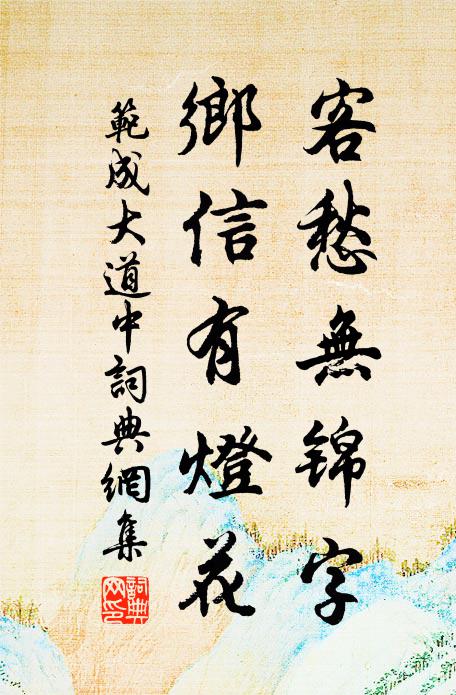 客愁無锦字
鄉信有燈花
範成大道中詞典網集
詞典网印